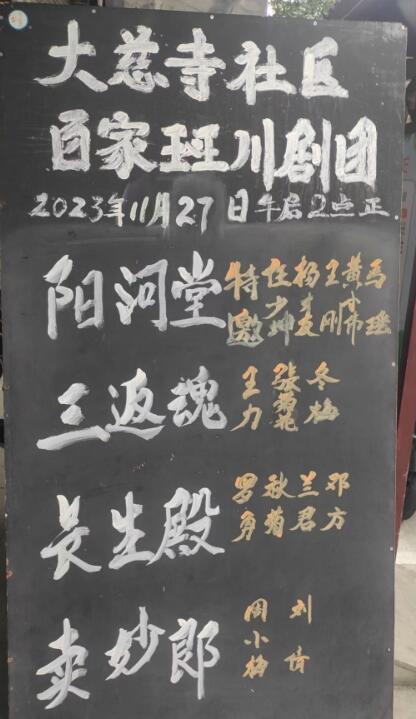 大慈寺社区
百家班川剧团
2023年11月27日午后2点正
阳河堂 特邀 任少坤 杨麦 王刚 黄小节 马瑶
三返魂 王力 张菊花 冬梅
长生殿 罗勇 秋菊 兰君 邓方
卖妙郎 周小梅 刘倩